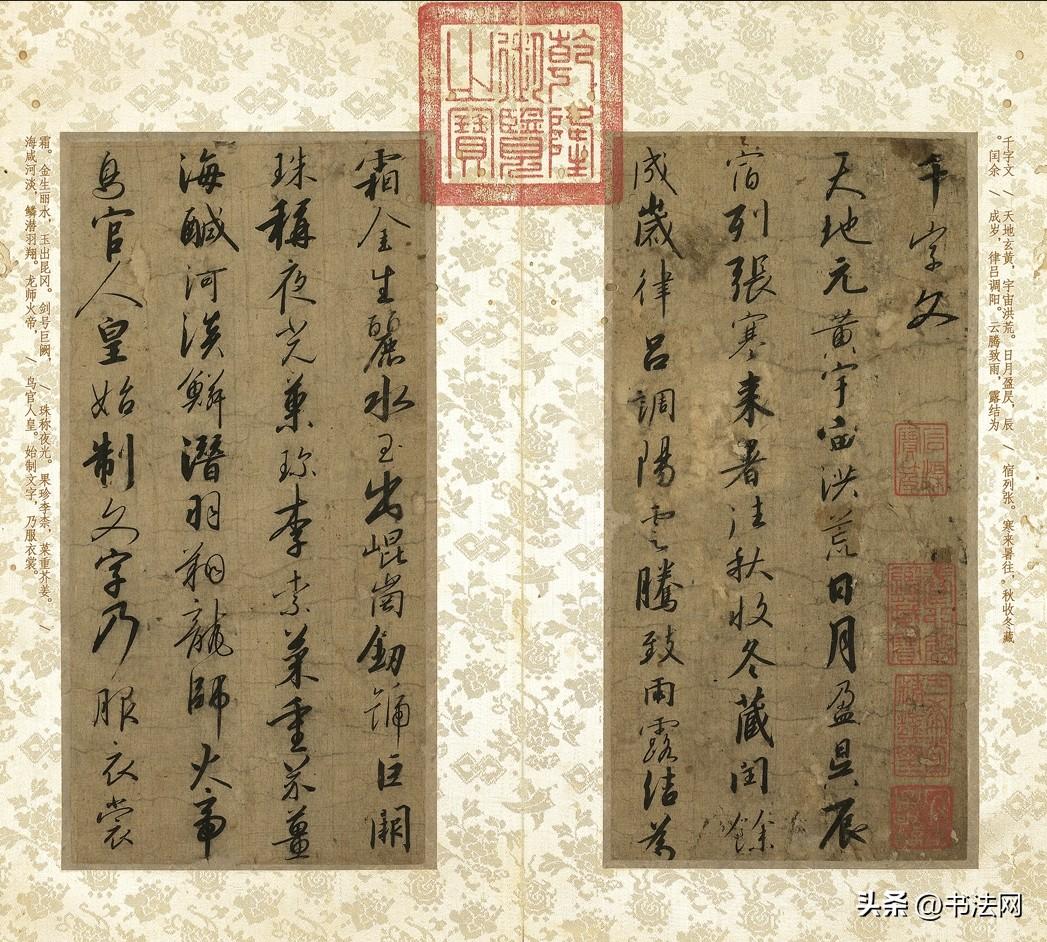 千字文 / 天地玄黄，宇宙洪荒。日月盈昃，辰 / 宿列张。寒来暑往，秋收冬藏
。闰余 / 成岁，律吕调阳。云腾致雨，露结为
千字文
天地元黄宇宙洪荒日月盈昃辰
宿列張寒来暑往秋收冬藏閏餘
成歲律吕調陽雲騰致雨露結為
乾隆
御覽
之寶
霜金生麗水玉出崐崗劒巨闕
珠稱夜光菓珍李柰菜重芥薑
海醎河淡鱗潛羽翔龍師火帝
鳥官人皇始制文字乃服衣裳
霜。金生丽水，玉出昆冈。剑号巨阙， / 珠称夜光。果珍李柰，菜重芥姜。 /
海咸河淡，鳞潜羽翔。龙师火帝， / 鸟官人皇。始制文字，乃服衣裳。
头条 @书法网